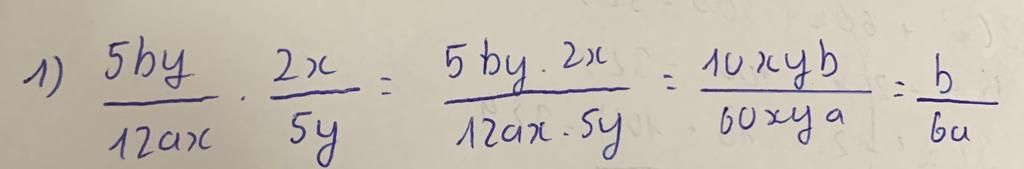 1) 5by/12ax · 2x/5y = 5by · 2x/12ax · 5y = 10xyb/60xya = b/6a